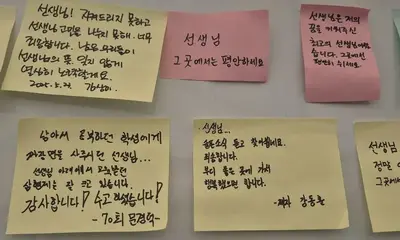 선생님! 지켜드리지 못하고
선생님 고민을 나누지 못해 너무
죄송합니다. 남은 우리들이
선생님의 뜻, 잊지 않게
열심히 노력할게요.
선생님
그곳에서는 평안하세요
선생님은 저의
꿈을 키워주신
최고의 선생님이셨
습니다. 그곳에선
편안히 쉬세요.
남아서 공부하던 학생에게
짜장면을 사주시던 선생님...
선생님 아래에서 공부했던
감사합니다! 수고 많으셨습니다!
-70회 문경덕-
선생님...
슬픈 소식 듣고 찾아뵙네요.
죄송합니다.
부디 좋은 곳에 가서
행복했으면 합니다.
-제자 강동훈
선생님
정말
그곳에서